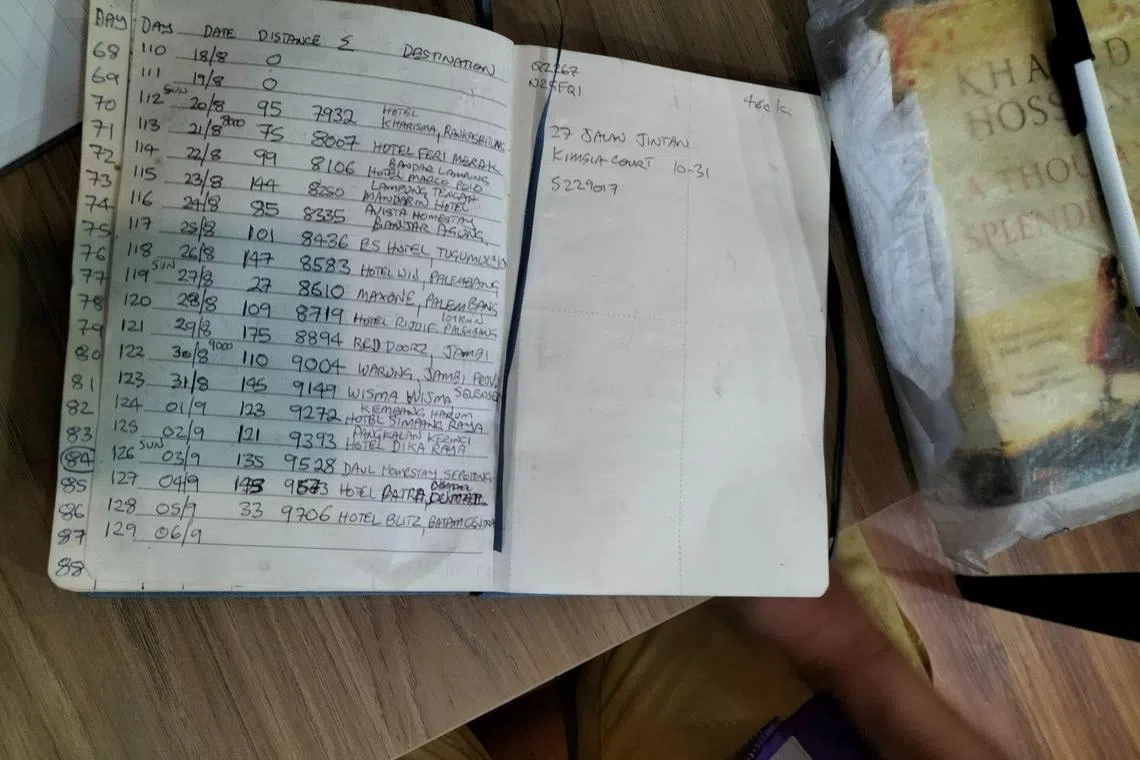 DAY DAY DATE DISTANCE Σ DESTINATION
68 110 18/8 0
69 111 19/8 0
70 112 SUN 20/8 95 7932 HOTEL
KHARISMA, RANKASBITUNG
71 113 21/8 8000 75 8007 HOTEL FERI MERAK
72 114 22/8 99 8106 BANDAR LAMPUNG
HOTEL MARCO POLO
73 115 23/8 144 8250 LAMPUNG TENGAH
MANDARIN HOTEL
74 116 24/8 85 8335 AVISTA HOMESTAY
BANJAR AGUNG
75 117 25/8 101 8436 BS HOTEL
76 118 26/8 147 8583 HOTEL WIN, PALEMBANG
77 119 SUN 27/8 27 8610 MAXONE, PALEMBANG
78 120 28/8 109 8719 HOTEL PALEMBANG
79 121 29/8 175 8894 RED DOORZ, JAMBI
80 122 30/8 9000 110 9004 WARUNG, JAMBI PROV.
81 123 31/8 145 9149 WISMA WISMA SELENSEN
82 124 01/9 123 9272 KEMBANG HARUM
HOTEL SIMPANG RAYA
83 125 02/9 121 9393 PANGKALAN KERINCI
HOTEL DIKA RAYA
84 126 SUN 03/9 135 9528 DAUL HOMESTAY,
85 127 04/9 9673 HOTEL BATRA,
86 128 05/9 33 9706 HOTEL BLITZ, BATAM CENTRE
87 129 06/9
88
460 k
27 JALAN JINTAN
KIMSIA COURT 10-31
S229017
KHA D
HOSS
A THOU
SPLENDI